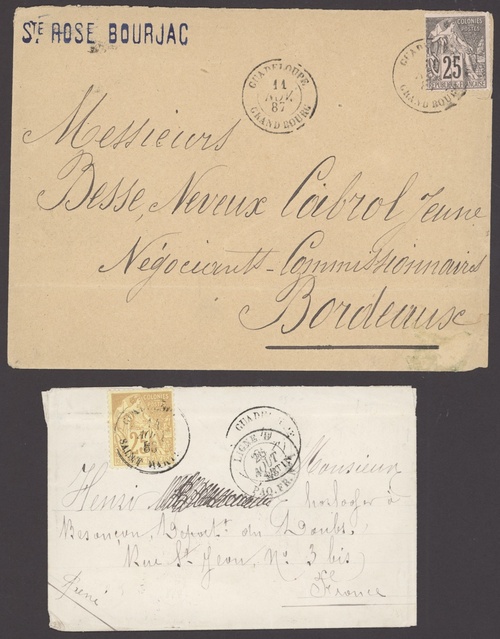 STE ROSE BOURJAC
GUADELOUPE
11
87
GRAND BOURG
COLONIES
POSTES
25
REPUBLIQUE FRANÇAISE
GRAND BOURG
Messieurs
Besse, Neveux Cabrol Jeune
Négociants-Commissionnaires
Bordeaux
COLONIES
25
SAINT MARTIN
LIGNE B
PAQ. FR.
Monsieur
Henri horloger à
Besançon, Départt. du Doubs.
Rue St Jean, No. 3 bis
France